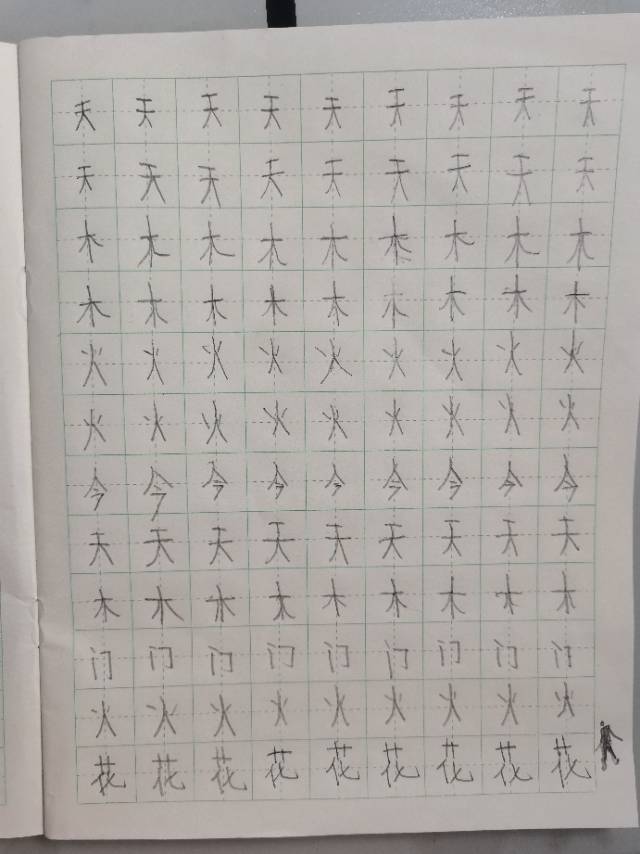 天天天天天天天天天
天天天天天天天天天
木木木木木木木木木
木木木木木木木木木
火火火火火火火火火
火火火火火火火火火
今今今今今今今今今
天天天天天天天天天
木木木木木木木木木
门门门门门门门门门
火火火火火火火火火
花花花花花花花花花